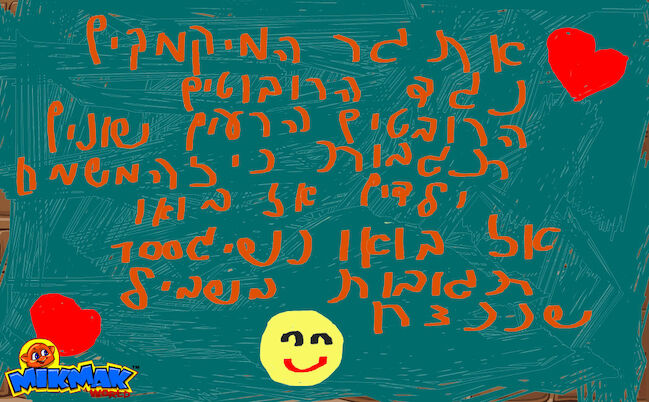 אתגר המיקמקים
נגד הרובוטים
הרובטים הרעים שונים
כי זה משמח
ילדים אז בואו
אז בואו נשיג 1000
תגובות בשביל
שננצח
MIKMAK™
WORLD